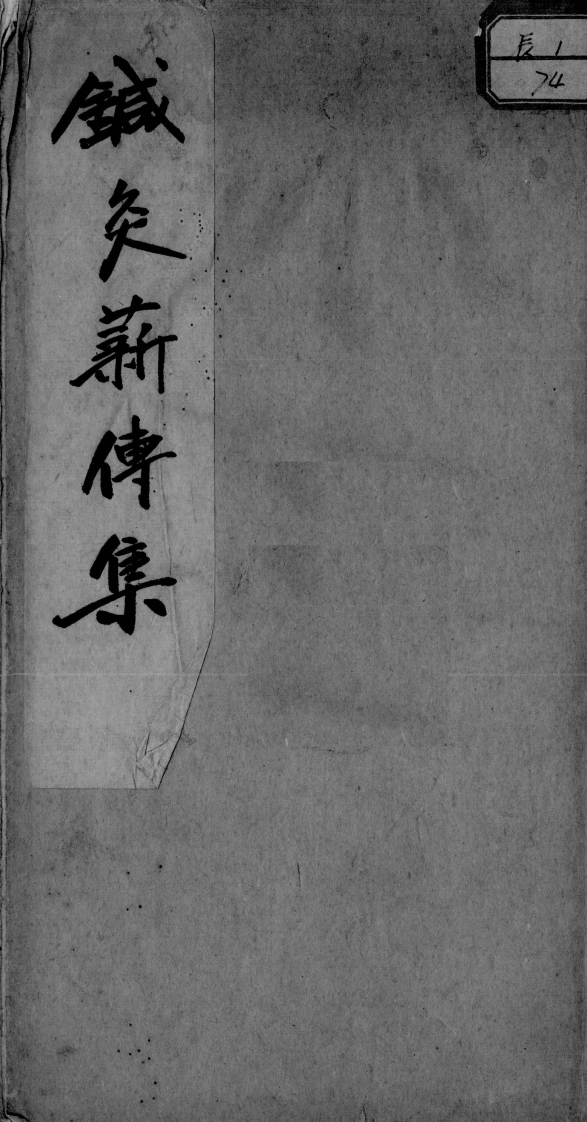 鍼灸薪傳集
長 1
74